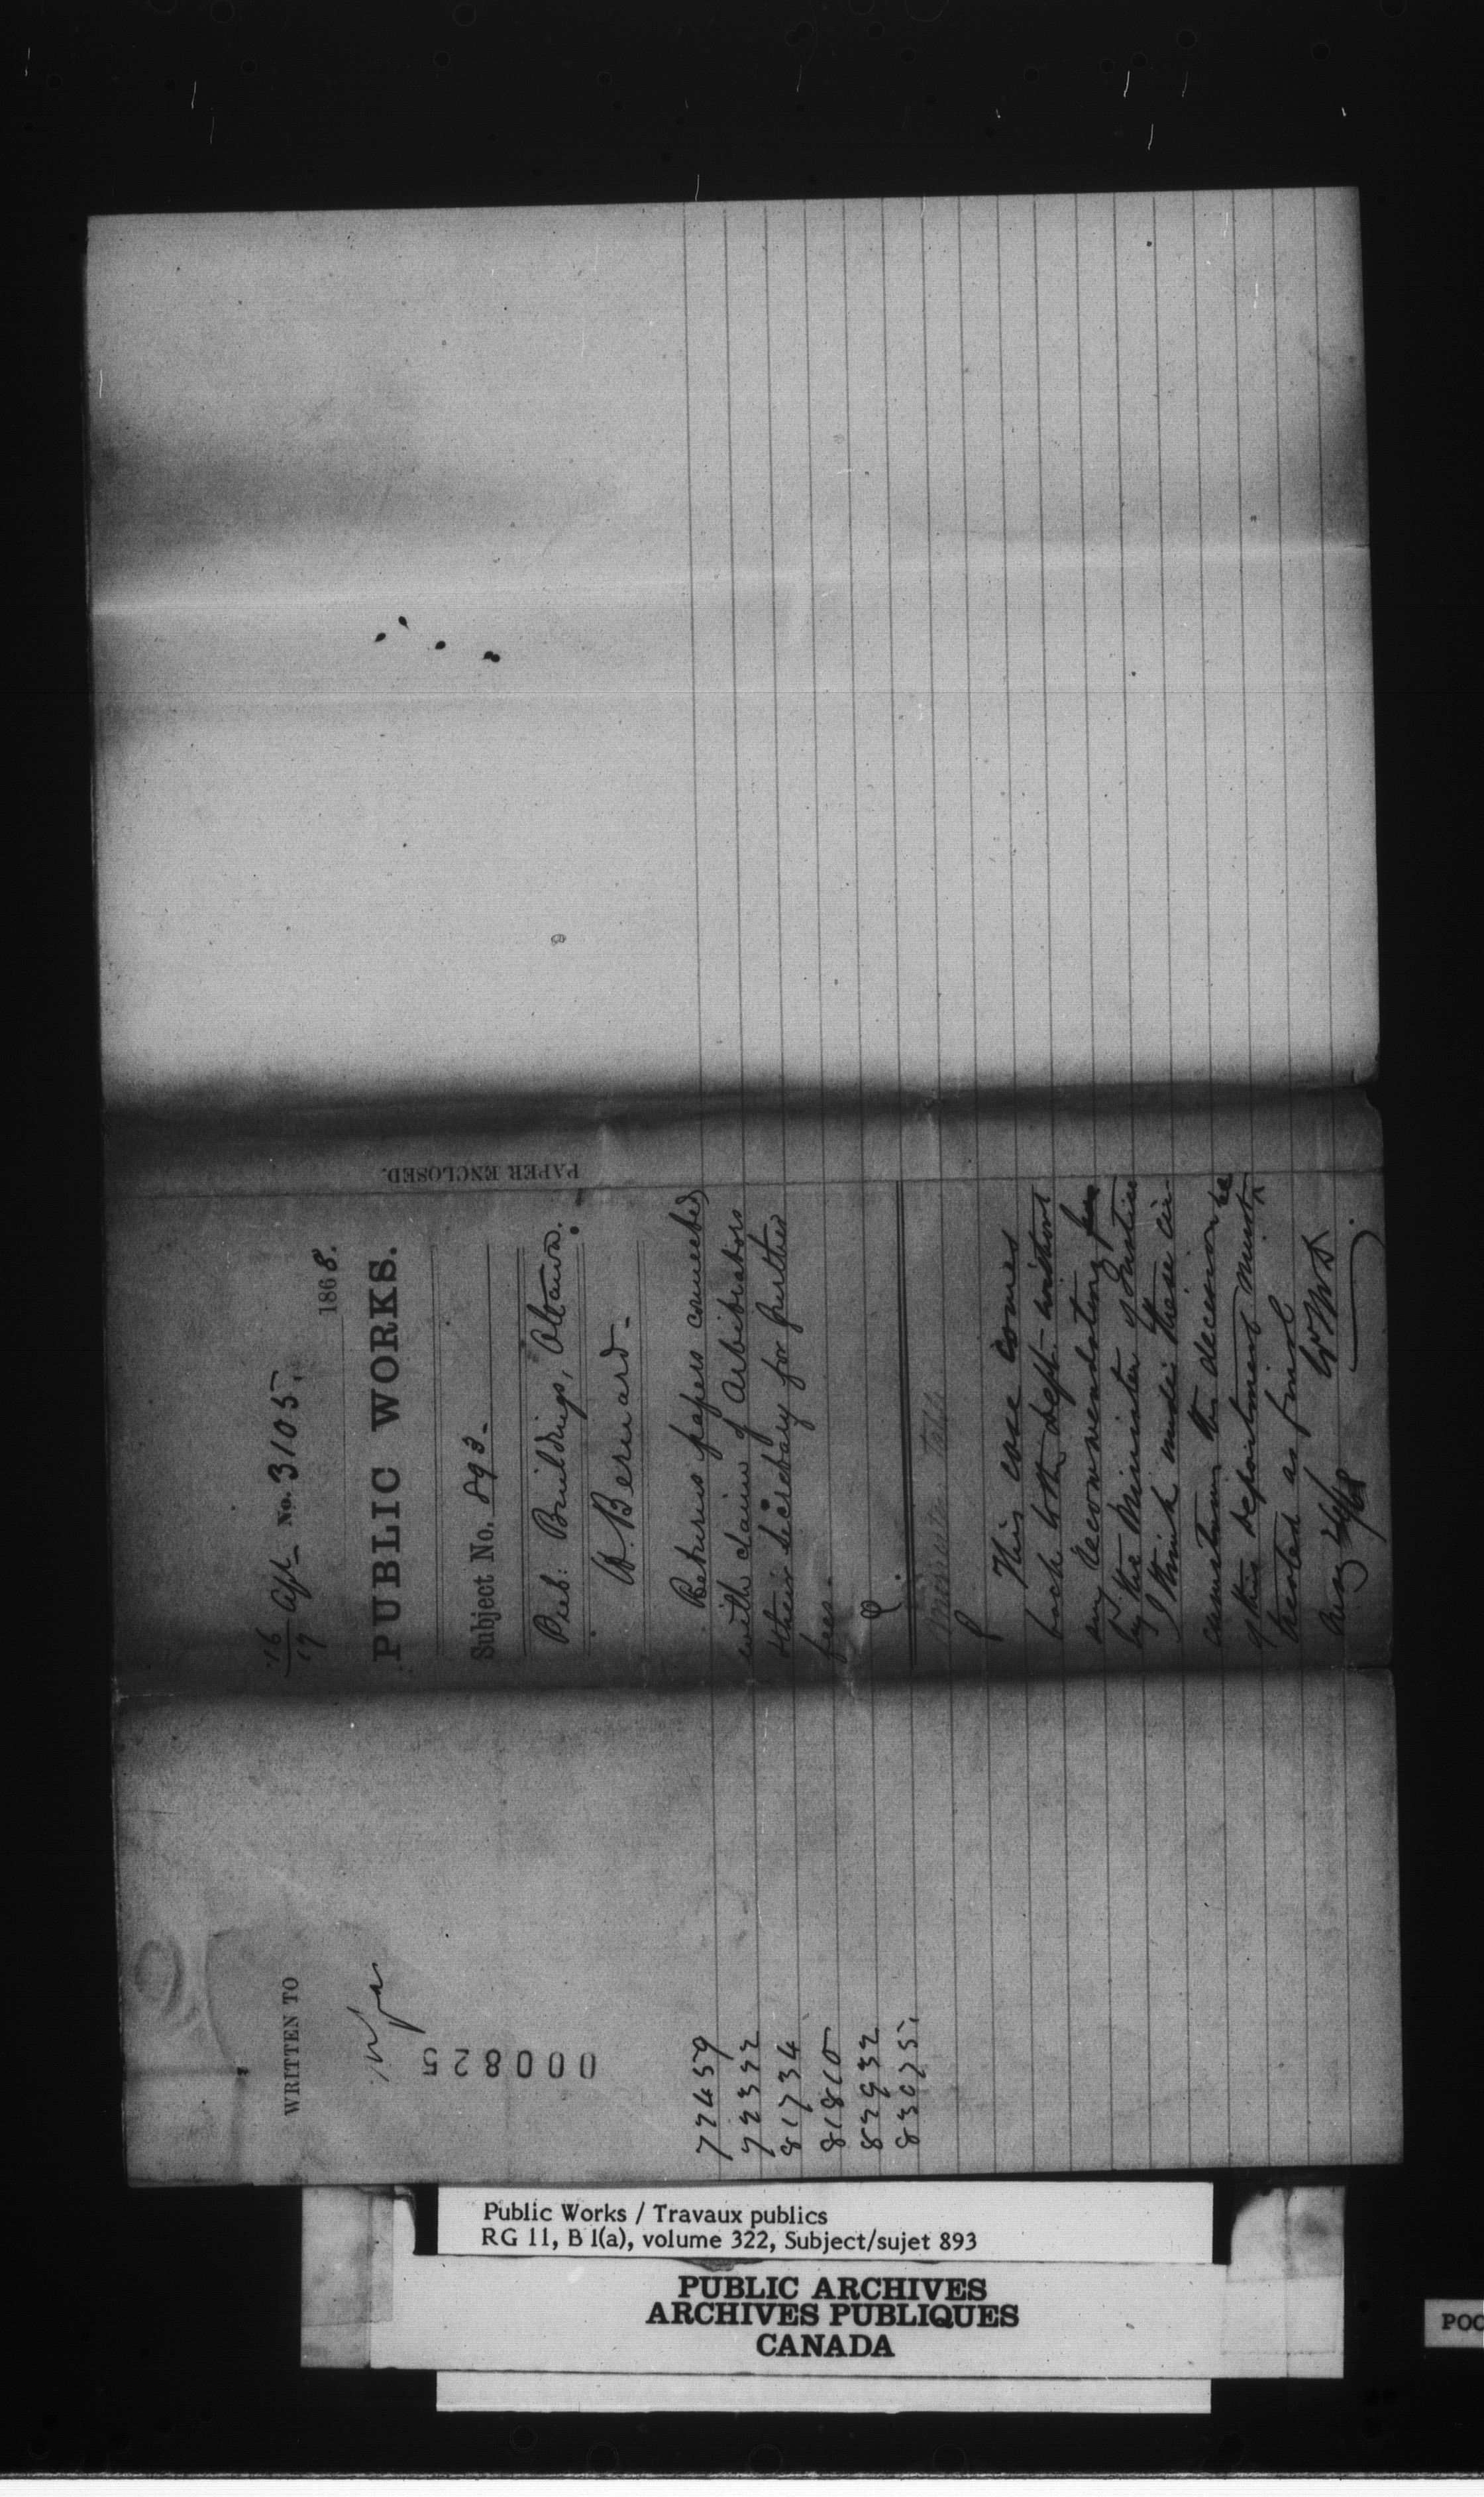 16/17 Apl- No. 3105.
1868.
PUBLIC WORKS.
Subject No. 893-
Pub: Buildings, Ottawa.
H. Bernard-
Returns papers connected
with claim of Arbitrators
their Secretary for further
fees.
Minister Table
This case comes
back to the dept. without
any recommendation
by the Minister of Justice
I think under these cir-
cumstances the decision
of this department must
be noted as final
Aug
PAPER ENCLOSED.
WRITTEN TO
000825
72459
72392
81734
81810
82932
83075.
Public Works / Travaux publics
RG 11, B 1(a), volume 322, Subject/sujet 893
PUBLIC ARCHIVES
ARCHIVES PUBLIQUES
CANADA